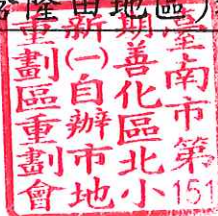 隆田地區)
臺南市第151
期善化區北小
新(一)自辦市地
重劃區重劃會